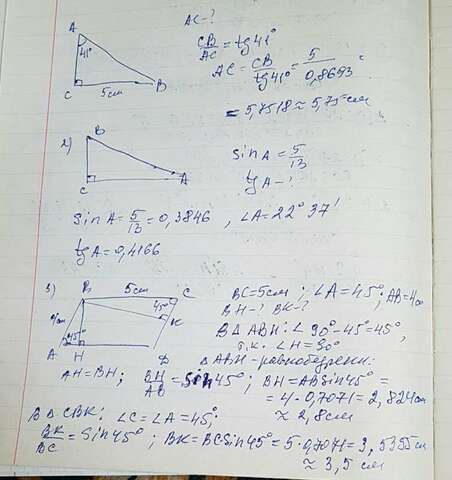 AC-?
A
41°
CB/AC = tg41°
AC = CB/tg41° = 5/0,8693
C 5см B
= 5,7518 ≈ 5,75 см
2) B
C A
sin A = 5/13
tg A - ?
sin A = 5/13 = 0,3846 , ∠A = 22° 37'
tg A = 0,4166
3) B 5см C
4см 45° K
A 45° H D
BC = 5см ; ∠A = 45° ; AB = 4см
BH - ? BK - ?
В Δ ABH: ∠ 90° - 45° = 45°,
т.к. ∠H = 90°
Δ ABH - равнобедренн:
AH = BH ; BH/AB = sin 45° ; BH = AB sin 45° =
= 4 · 0,7071 = 2,824см
≈ 2,8см
В Δ CBK: ∠C = ∠A = 45°;
BK/BC = sin 45° ; BK = BC sin 45° = 5 · 0,7071 = 3,5355 см
≈ 3,5 см